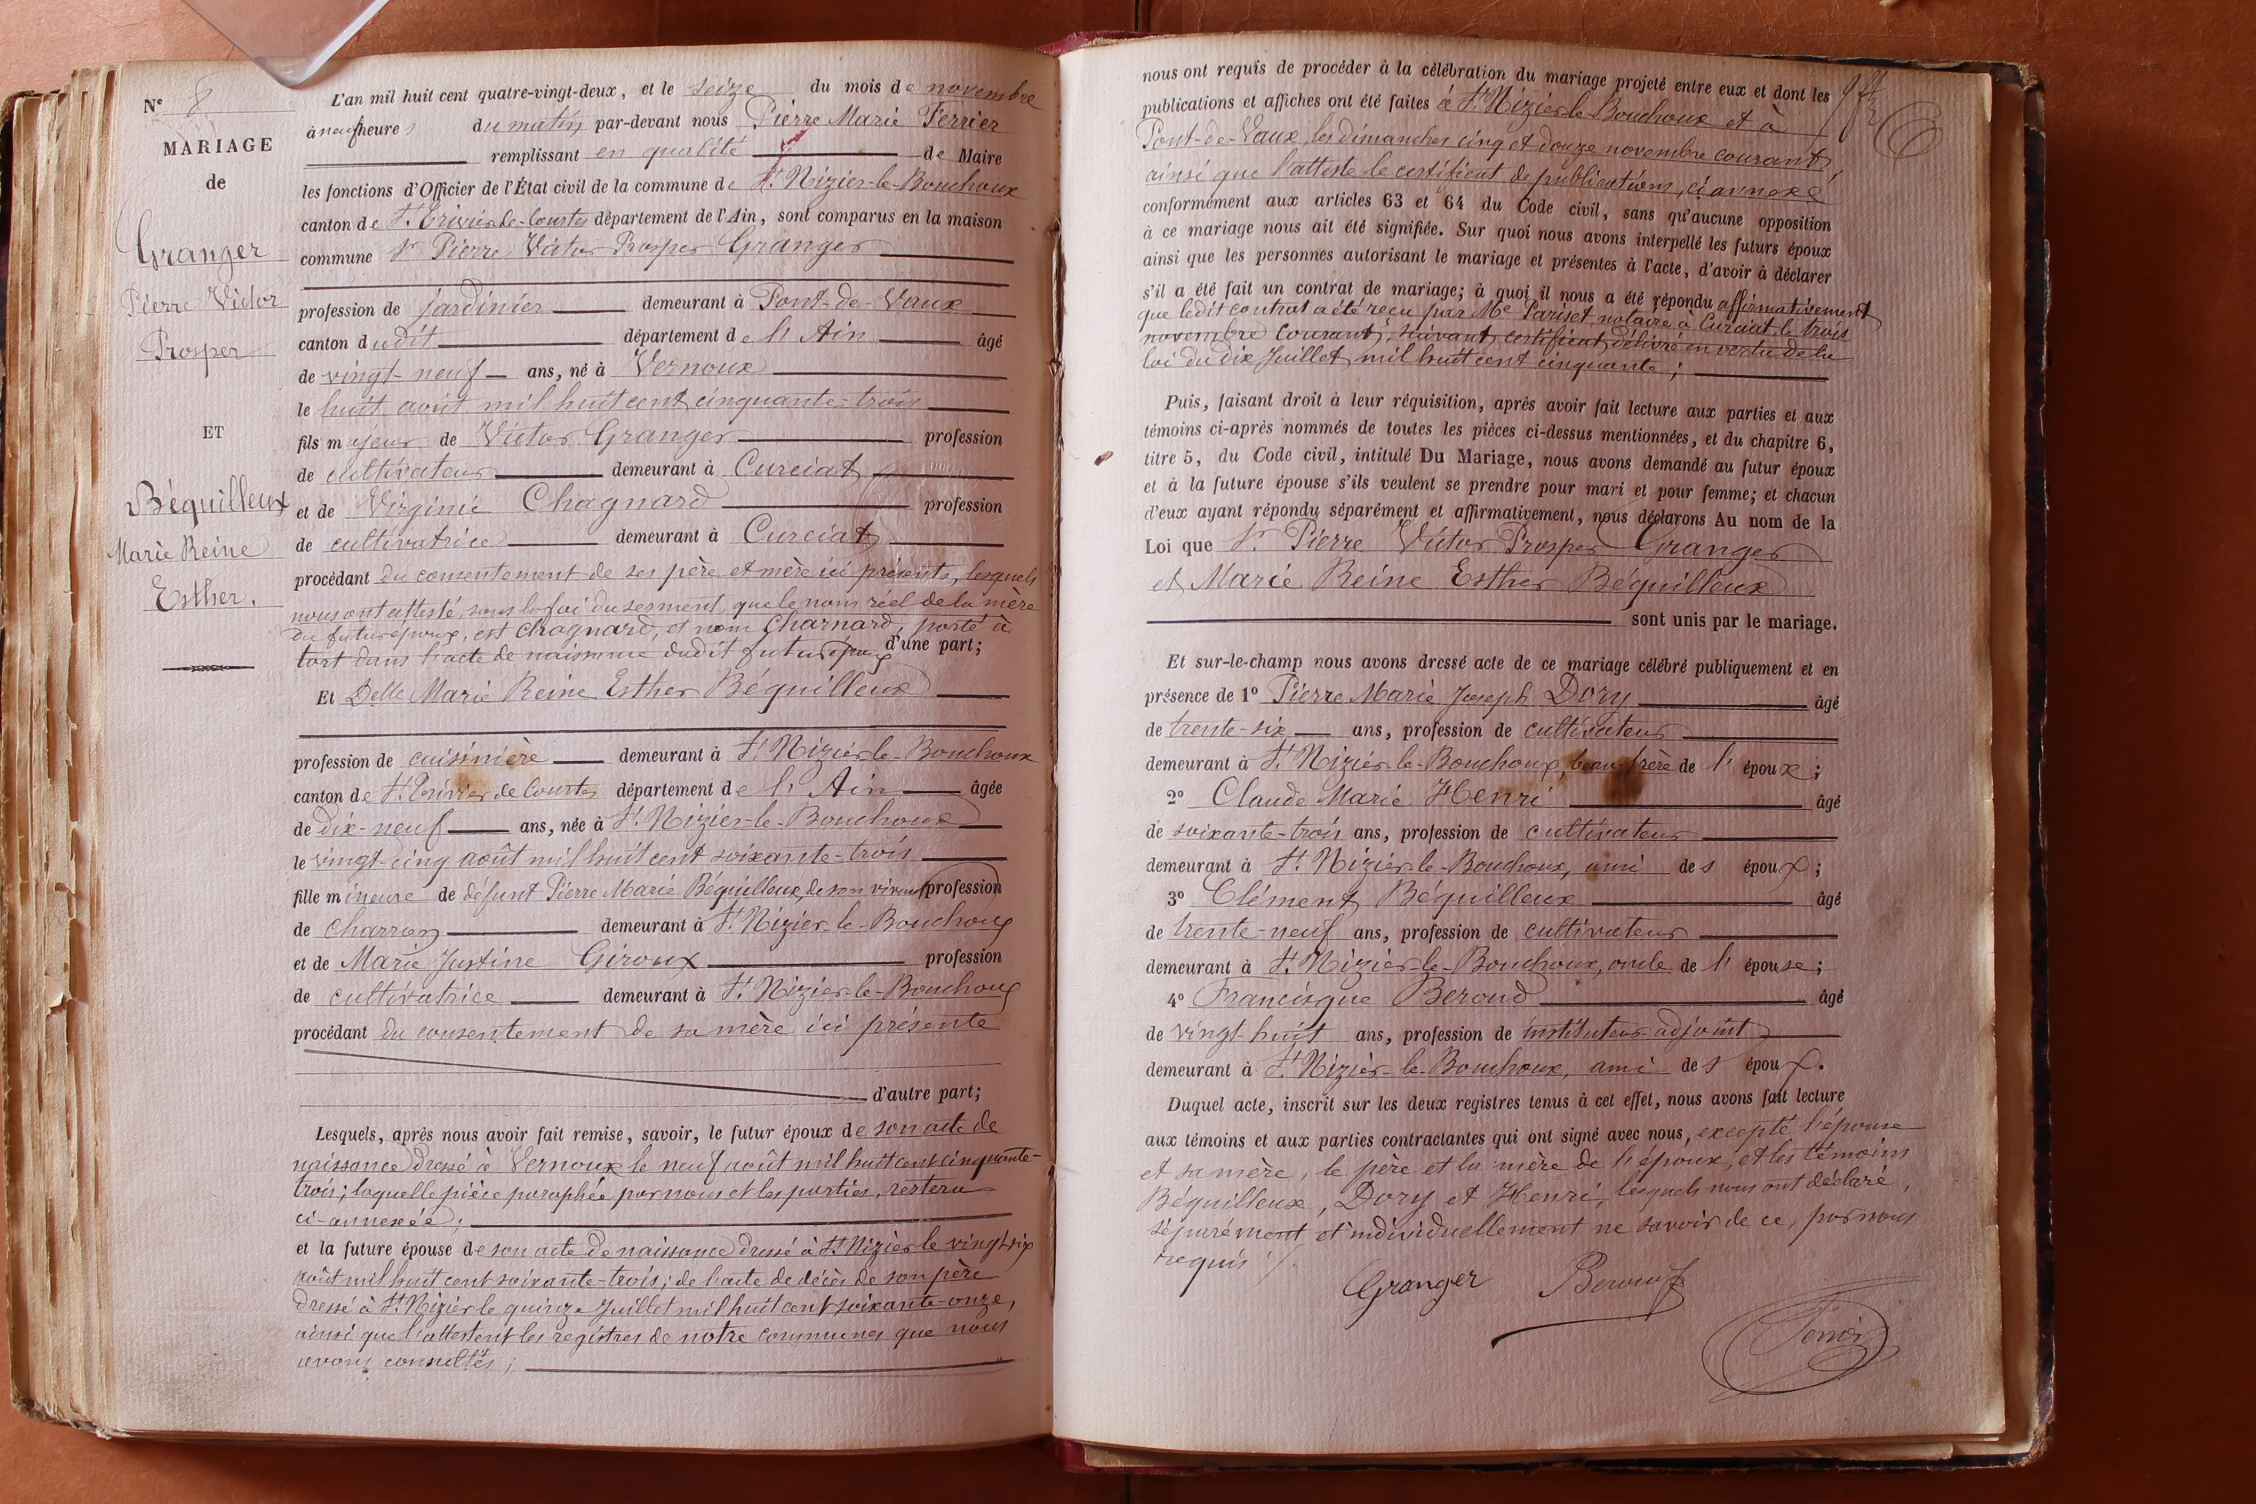 N° 8
MARIAGE
de
Granger
Pierre Victor
Prosper
ET
Béquilleux
Marie Reine
Esther.
L'an mil huit cent quatre-vingt-deux, et le seize du mois de novembre
à neuf heures du matin, par-devant nous Pierre Marie Ferrier
remplissant en qualité de Maire
les fonctions d'Officier de l'État civil de la commune de St. Nizier-le-Bouchoux
canton de St. Trivier-de-Courtes département de l'Ain, sont comparus en la maison
commune Sr Pierre Victor Prosper Granger
profession de jardinier demeurant à Pont-de-Vaux
canton dudit département de l'Ain âgé
de vingt-neuf ans, né à Vernoux
le huit août mil huit cent cinquante-trois
fils majeur de Victor Granger profession
de cultivateur demeurant à Curciat
et de Virginie Chagnard profession
de cultivatrice demeurant à Curciat
procédant du consentement de ses père et mère ici présents, lesquels
nous ont attesté, sous la foi du serment, que le nom réel de la mère
du futur époux, est Chagnard, et nom Charnard, porté à
tort dans l'acte de naissance dudit futur époux d'une part;
Et Delle Marie Reine Esther Béquilleux
profession de cuisinière demeurant à St. Nizier-le-Bouchoux
canton de St. Trivier de Courtes département de l'Ain âgée
de dix-neuf ans, née à St. Nizier-le-Bouchoux
le vingt-cinq août mil huit cent soixante-trois
fille mineure de défunt Pierre Marie Béquilleux, de son vivant profession
de charron demeurant à St. Nizier-le-Bouchoux
et de Marie Justine Giroux profession
de cultivatrice demeurant à St. Nizier-le-Bouchoux
procédant du consentement de sa mère ici présente
d'autre part;
Lesquels, après nous avoir fait remise, savoir, le futur époux de son acte de
naissance dressé à Vernoux le neuf août mil huit cent cinquante-
trois; laquelle pièce paraphée par nous et les parties, restera
ci-annexée;
et la future épouse de son acte de naissance dressé à St. Nizier le vingt-six
août mil huit cent soixante-trois; de l'acte de décès de son père
dressé à St. Nizier le quinze Juillet mil huit cent soixante-onze,
ainsi que l'attestent les registres de notre communes que nous
avons consultés;
nous ont requis de procéder à la célébration du mariage projeté entre eux et dont les
publications et affiches ont été faites à St. Nizier-le-Bouchoux et à
Pont-de-Vaux, les dimanches cinq et douze novembre courant,
ainsi que l'atteste le certificat de publications, ci annexé
conformément aux articles 63 et 64 du Code civil, sans qu'aucune opposition
à ce mariage nous ait été signifiée. Sur quoi nous avons interpellé les futurs époux
ainsi que les personnes autorisant le mariage et présentes à l'acte, d'avoir à déclarer
s'il a été fait un contrat de mariage; à quoi il nous a été répondu affirmativement
que ledit contrat a été reçu par Me Pariset notaire à Curciat le trois
novembre courant, suivant certificat délivré en vertu de la
loi du dix Juillet mil huit cent cinquante;
Puis, faisant droit à leur réquisition, après avoir fait lecture aux parties et aux
témoins ci-après nommés de toutes les pièces ci-dessus mentionnées, et du chapitre 6,
titre 5, du Code civil, intitulé Du Mariage, nous avons demandé au futur époux
et à la future épouse s'ils veulent se prendre pour mari et pour femme; et chacun
d'eux ayant répondu séparément et affirmativement, nous déclarons Au nom de la
Loi que Sr. Pierre Victor Prosper Granger
et Marie Reine Esther Béquilleux
sont unis par le mariage.
Et sur-le-champ nous avons dressé acte de ce mariage célébré publiquement et en
présence de 1° Pierre Marie Joseph Dory âgé
de trente-six ans, profession de cultivateur
demeurant à St. Nizier-le-Bouchoux, beau-frère de l'époux;
2° Claude Marie Henri âgé
de soixante-trois ans, profession de cultivateur
demeurant à St. Nizier-le-Bouchoux, ami des époux;
3° Clément Béquilleux âgé
de trente-neuf ans, profession de cultivateur
demeurant à St. Nizier-le-Bouchoux, oncle de l'épouse;
4° Francisque Beroud âgé
de vingt-huit ans, profession de instituteur adjoint
demeurant à St. Nizier-le-Bouchoux, ami des époux.
Duquel acte, inscrit sur les deux registres tenus à cet effet, nous avons fait lecture
aux témoins et aux parties contractantes qui ont signé avec nous, excepté l'épouse
et sa mère, le père et la mère de l'époux, et les témoins
Béquilleux, Dory et Henri, lesquels nous ont déclaré,
séparément et individuellement ne savoir de ce, par nous
requis ./.
Granger Beroud
Ferrier